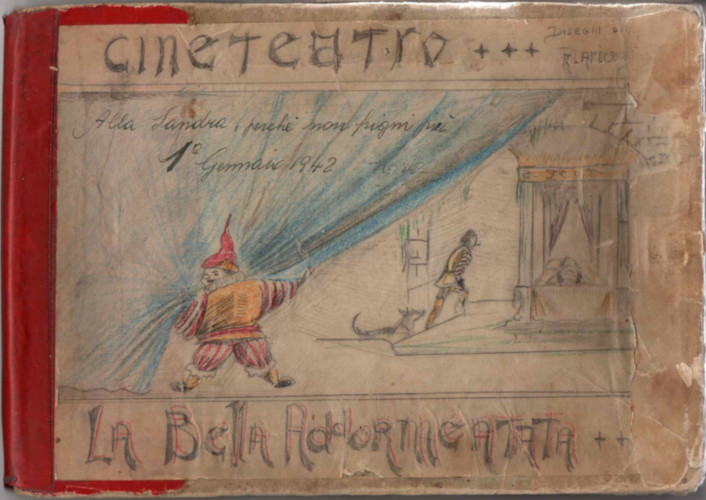 CINETEATRO +++
DISEGNI DI
Alla Sandra, perchè non pigni più
1° Gennaio 1942
LA BELLA ADDORMENTATA ++